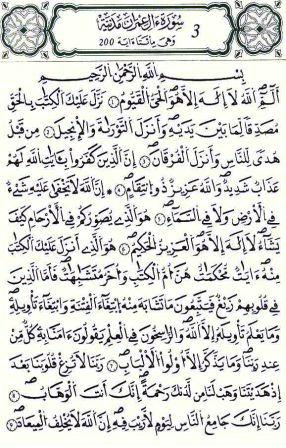 سُورَةُ آلِ عِمْرَانَ مَدَنِيَّة 3
وَهِيَ مِائَتَا ءَايَة 200
بِسْمِ اللَّهِ الرَّحْمَٰنِ الرَّحِيمِ
الٓمٓ ١ اللَّهُ لَآ إِلَٰهَ إِلَّا هُوَ الْحَىُّ الْقَيُّومُ ٢ نَزَّلَ عَلَيْكَ الْكِتَٰبَ بِالْحَقِّ
مُصَدِّقًا لِّمَا بَيْنَ يَدَيْهِ وَأَنزَلَ التَّوْرَىٰةَ وَالْإِنجِيلَ ٣ مِن قَبْلُ
هُدًى لِّلنَّاسِ وَأَنزَلَ الْفُرْقَانَ إِنَّ الَّذِينَ كَفَرُوا بِـَٔايَٰتِ اللَّهِ لَهُمْ
عَذَابٌ شَدِيدٌ وَاللَّهُ عَزِيزٌ ذُو انتِقَامٍ ٤ إِنَّ اللَّهَ لَا يَخْفَىٰ عَلَيْهِ شَىْءٌ
فِى الْأَرْضِ وَلَا فِى السَّمَآءِ ٥ هُوَ الَّذِى يُصَوِّرُكُمْ فِى الْأَرْحَامِ كَيْفَ
يَشَآءُ لَآ إِلَٰهَ إِلَّا هُوَ الْعَزِيزُ الْحَكِيمُ ٦ هُوَ الَّذِىٓ أَنزَلَ عَلَيْكَ الْكِتَٰبَ
مِنْهُ ءَايَٰتٌ مُّحْكَمَٰتٌ هُنَّ أُمُّ الْكِتَٰبِ وَأُخَرُ مُتَشَٰبِهَٰتٌ فَأَمَّا الَّذِينَ
فِى قُلُوبِهِمْ زَيْغٌ فَيَتَّبِعُونَ مَا تَشَٰبَهَ مِنْهُ ابْتِغَآءَ الْفِتْنَةِ وَابْتِغَآءَ تَأْوِيلِهِ
وَمَا يَعْلَمُ تَأْوِيلَهُٓ إِلَّا اللَّهُ وَالرَّٰسِخُونَ فِى الْعِلْمِ يَقُولُونَ ءَامَنَّا بِهِ كُلٌّ مِّنْ
عِندِ رَبِّنَا وَمَا يَذَّكَّرُ إِلَّآ أُولُوا الْأَلْبَٰبِ ٧ رَبَّنَا لَا تُزِغْ قُلُوبَنَا بَعْدَ
إِذْ هَدَيْتَنَا وَهَبْ لَنَا مِن لَّدُنكَ رَحْمَةً إِنَّكَ أَنتَ الْوَهَّابُ ٨
رَبَّنَآ إِنَّكَ جَامِعُ النَّاسِ لِيَوْمٍ لَّا رَيْبَ فِيهِ إِنَّ اللَّهَ لَا يُخْلِفُ الْمِيعَادَ ٩